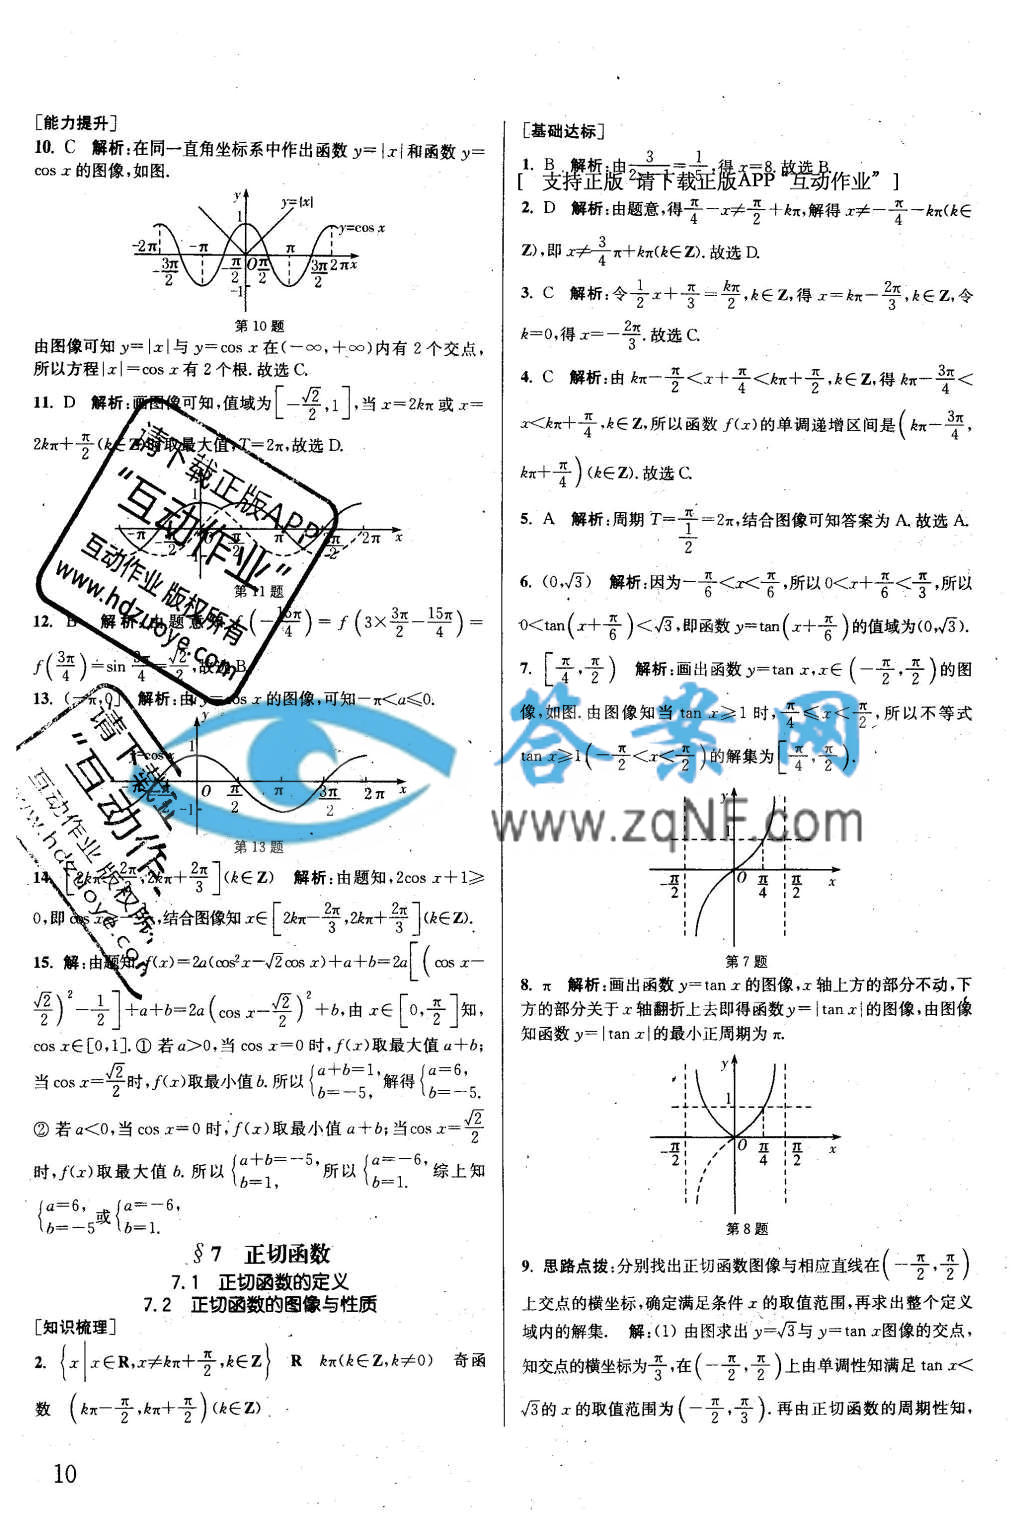 [能力提升]
10. C 解析:在同一直角坐标系中作出函数 y=|x|和函数 y=
cos x 的图像,如图.
y
y=|x|
1
y=cos x
-2π -π π
-3π/2 -π/2 O π/2 3π/2 2π x
-1
第10题
由图像可知 y=|x|与 y=cos x 在(-∞,+∞)内有 2 个交点,
所以方程|x|=cos x 有 2 个根.故选 C.
11. D 解析:画图像可知,值域为[-√2/2,1],当 x=2kπ 或 x=
2kπ+π/2(k∈Z)时取最大值,T=2π,故选 D.
1
-π -π/2 π/2 π 3π/2 2π x
第11题
12. B 解析:由题意 f(-15π/4)=f(3×3π/2-15π/4)=
f(3π/4)=sin 3π/4=√2/2,故选 B.
13. (-π,0] 解析:由 y=cos x 的图像,可知-π<a≤0.
y
1
y=cos x
O π/2 π 3π/2 2π x
-1
第13题
14. [2kπ-2π/3,2kπ+2π/3](k∈Z) 解析:由题知,2cos x+1≥
0,即 cos x≥ ,结合图像知 x∈[2kπ-2π/3,2kπ+2π/3](k∈Z).
15. 解:由题知 f(x)=2a(cos²x-√2cos x)+a+b=2a[(cos x-
√2/2)²-1/2]+a+b=2a(cos x-√2/2)²+b,由 x∈[0,π/2]知,
cos x∈[0,1].① 若 a>0,当 cos x=0 时,f(x)取最大值 a+b;
当 cos x=√2/2时,f(x)取最小值 b.所以{a+b=1, b=-5,解得{a=6, b=-5.
② 若 a<0,当 cos x=0 时,f(x)取最小值 a+b;当cos x=√2/2
时,f(x)取最大值 b.所以{a+b=-5, b=1,所以{a=-6, b=1.综上知
{a=6, b=-5或{a=-6, b=1.
§7 正切函数
7.1 正切函数的定义
7.2 正切函数的图像与性质
[知识梳理]
2. {x|x∈R,x≠kπ+π/2,k∈Z} R kπ(k∈Z,k≠0) 奇函
数 (kπ-π/2,kπ+π/2)(k∈Z)
10
[基础达标]
1. B 解析:由 =1/5,得 x=8.故选 B.
[ 支持正版 请下载正版APP“互动作业” ]
2. D 解析:由题意,得π/4-x≠π/2+kπ,解得 x≠-π/4-kπ(k∈
Z),即 x≠3/4π+kπ(k∈Z).故选 D.
3. C 解析:令1/2x+π/3=kπ/2,k∈Z,得 x=kπ-2π/3,k∈Z,令
k=0,得 x=-2π/3.故选 C.
4. C 解析:由 kπ-π/2<x+π/4<kπ+π/2,k∈Z,得 kπ-3π/4<
x<kπ+π/4,k∈Z,所以函数 f(x)的单调递增区间是(kπ-3π/4,
kπ+π/4)(k∈Z).故选 C.
5. A 解析:周期 T=π/(1/2)=2π,结合图像可知答案为 A.故选 A.
6. (0,√3) 解析:因为-π/6<x<π/6,所以 0<x+π/6<π/3,所以
0<tan(x+π/6)<√3,即函数 y=tan(x+π/6)的值域为(0,√3).
7. [π/4,π/2) 解析:画出函数 y=tan x,x∈(-π/2,π/2)的图
像,如图.由图像知当 tan x≥1 时,π/4≤x<π/2,所以不等式
tan x≥1(-π/2<x<π/2)的解集为[π/4,π/2).
y
1
-π/2 O π/4 π/2 x
第7题
8. π 解析:画出函数 y=tan x 的图像,x 轴上方的部分不动,下
方的部分关于 x 轴翻折上去即得函数 y=|tan x|的图像,由图像
知函数 y=|tan x|的最小正周期为 π.
y
1
-π/2 O π/4 π/2 x
第8题
9. 思路点拨:分别找出正切函数图像与相应直线在(-π/2,π/2)
上交点的横坐标,确定满足条件 x 的取值范围,再求出整个定义
域内的解集. 解:(1) 由图求出 y=√3与 y=tan x图像的交点,
知交点的横坐标为π/3,在(-π/2,π/2)上由单调性知满足 tan x<
√3的 x 的取值范围为(-π/2,π/3).再由正切函数的周期性知,
请下载正版APP
“互动作业”
互动作业 版权所有
www.hdzuoye.com
请下载
“互动作
互动作业 版权所
www.hdzuoye.con
答案网
www.zqNF.com